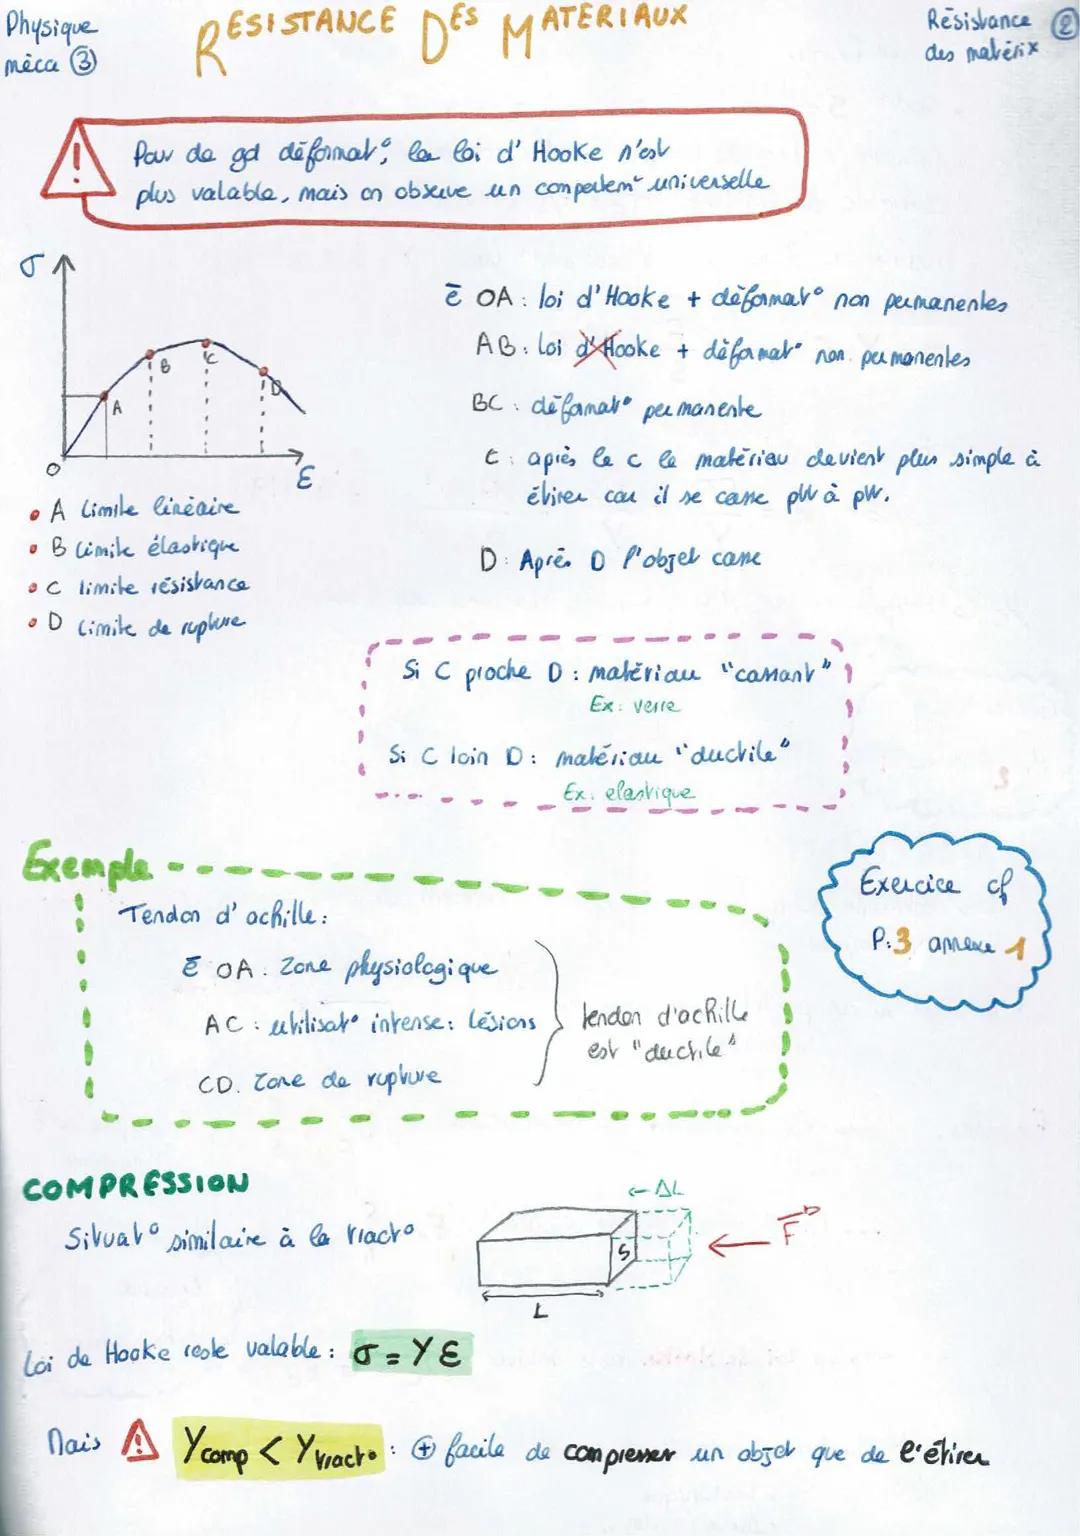 Physique
méca ③
RESISTANCE DES MATERIAUX
Résistance ②
des matérix
!
Pour de gd déformat°, la loi d'Hooke n'est
plus valable, mais on observe un comportemt universelle
σ
A
B
C
D
O
ε
• A Limite linéaire
• B Limite élastique
• C limite résistance
• D Limite de rupture
ē OA : loi d'Hooke + déformat° non permanentes
AB : Loi d'Hooke + déformat° non permanentes
BC : déformat° permanente
C : après le C le matériau devient plus simple à
étirer car il se casse ptt à ptt.
D : Après D l'objet casse
Si C proche D : matériau "cassant"
Ex : verre
Si C loin D : matériau "ductile"
Ex : elastique
Exemple
Tendon d'achille :
ē OA : Zone physiologique
AC : utilisat° intense : Lésions
CD : Zone de rupture
tendon d'achille
est "ductile"
Exercice cf
P.3 annexe 1
COMPRESSION
Situat° similaire à la tract°
← ΔL
S
L
F
Loi de Hooke reste valable : σ = Y ε
Mais ! Ycomp < Ytract° : ⊕ facile de compresser un objet que de l'étirer